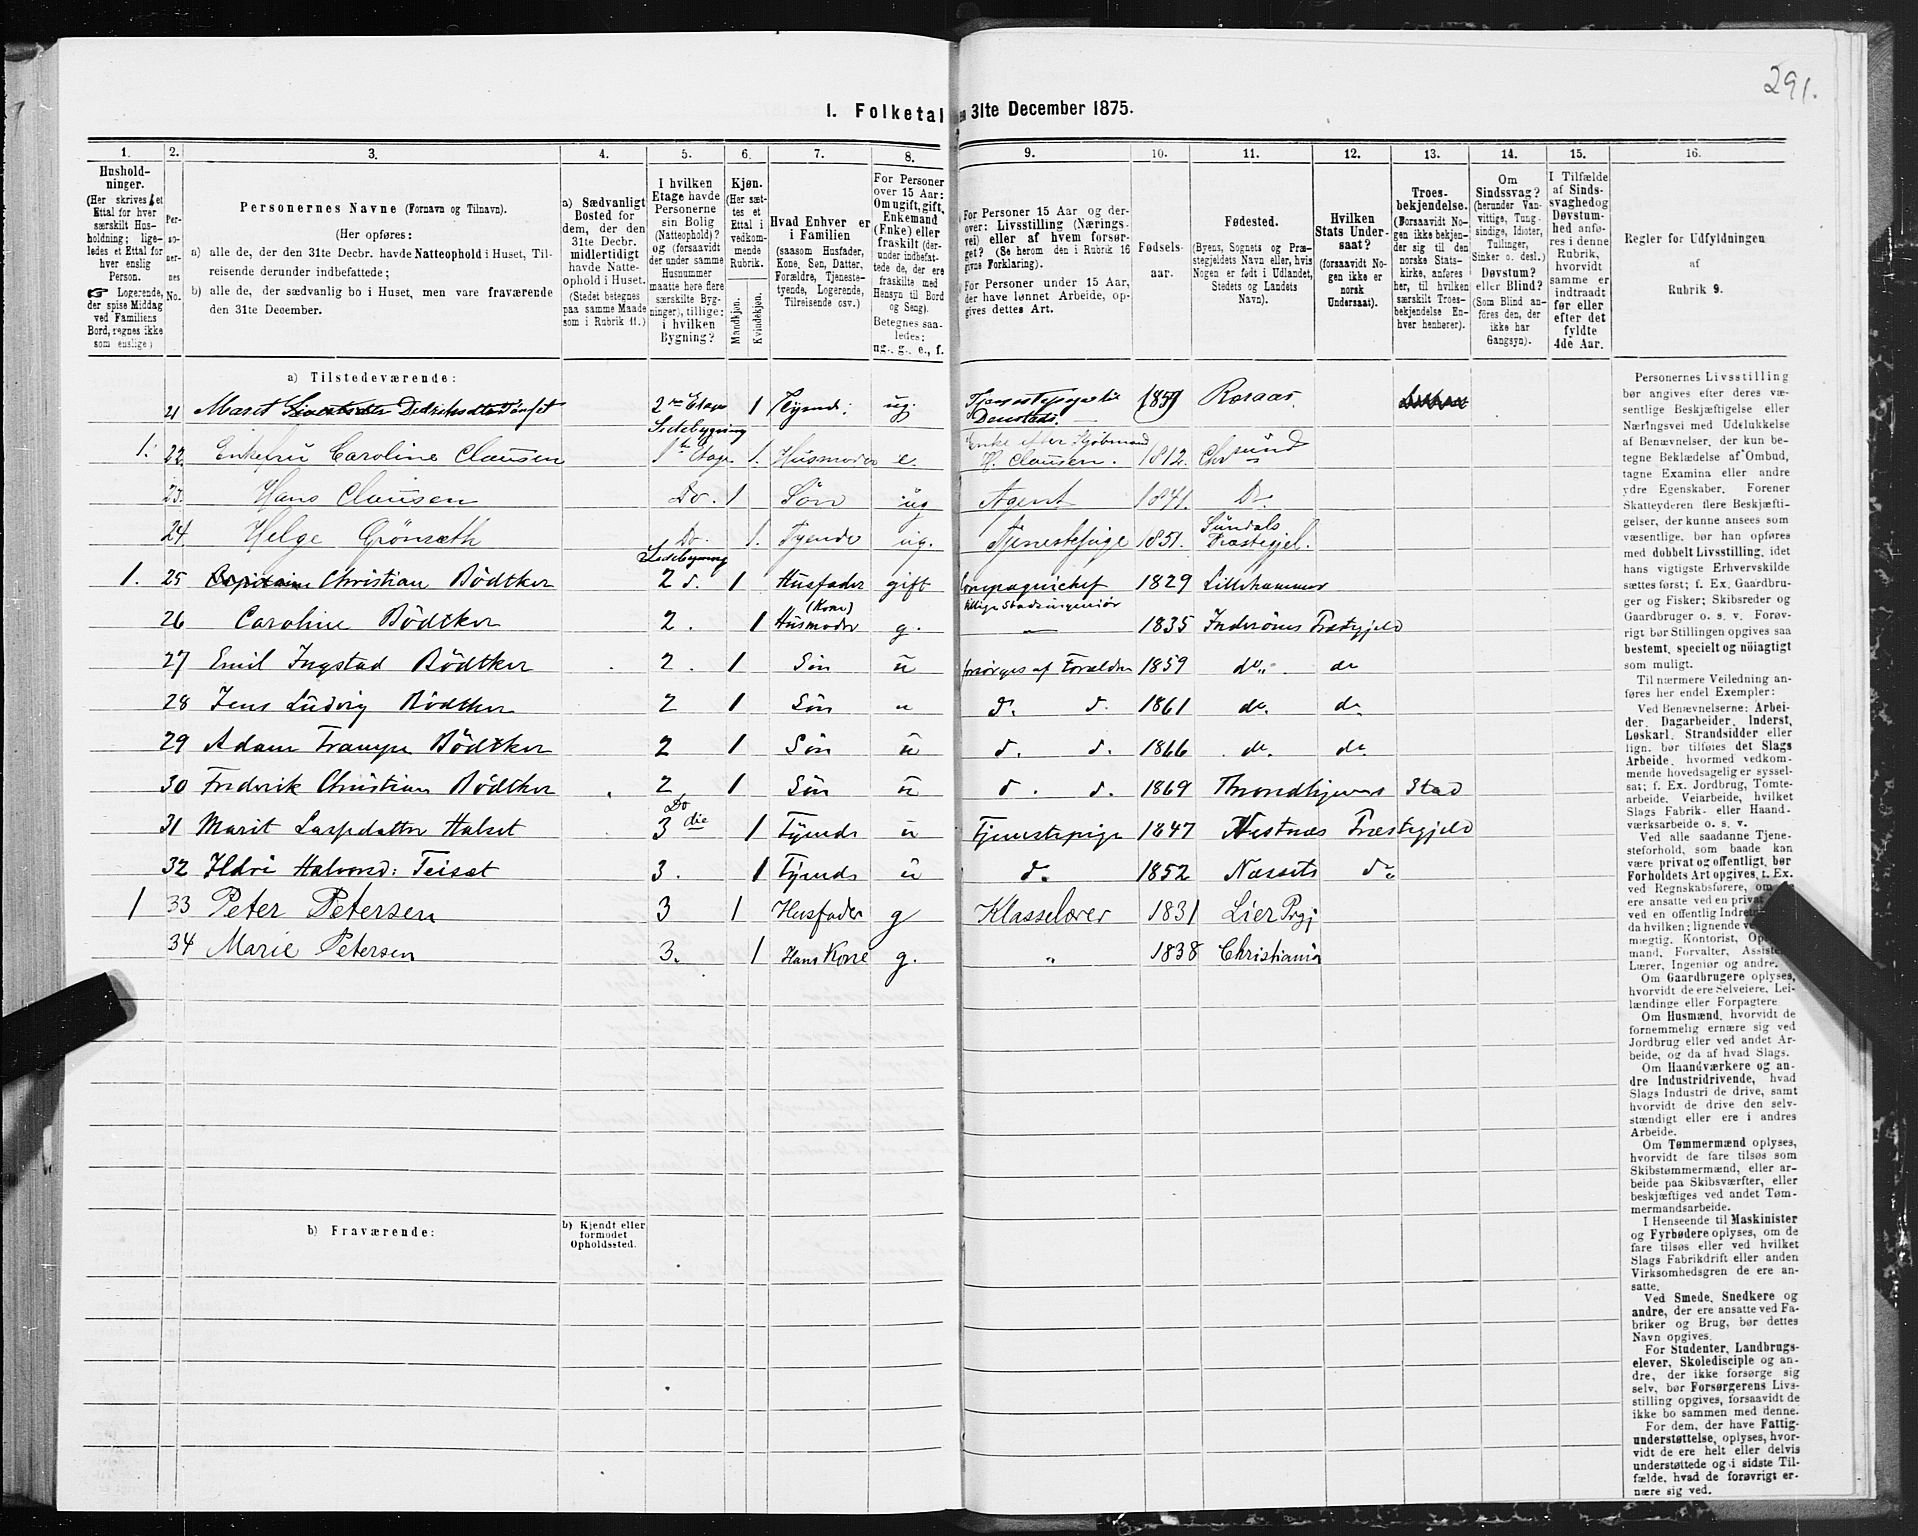 291.
I. Folketal
en 31te December 1875.
1. 2. 3. 4. 5. 6. 7. 8. 9. 10. 11. 12. 13. 14. 15. 16.
Hushold-
ninger.
(Her skrives et
Ettal for hver
særskilt Hus-
holdning; lige-
ledes et Ettal for
hver enslig
Person.
☞ Logerende,
der spise Middag
ved Familiens
Bord, regnes ikke
som enslige)
Per-
so-
ner-
nes
No.
Personernes Navne (Fornavn og Tilnavn).
(Her opføres:
a) alle de, der den 31te Decbr. havde Natteophold i Huset, Til-
reisende derunder indbefattede;
b) alle de, der sædvanlig bo i Huset, men vare fraværende
den 31te December.
a) Sædvanligt
Bosted for
dem, der den
31te Decbr.
midlertidigt
havde Natte-
ophold i Huset.
(Stedet betegnes
paa samme Maade
som i Rubrik 11.)
I hvilken
Etage havde
Personerne
sin Bolig
(Natteophold)?
og (forsaavidt
der under samme
Husnummer
maatte høre flere
særskilte Byg-
ninger), tillige:
i hvilken
Bygning?
Kjøn.
(Her sæt-
tes et
Ettal i
vedkom-
mende
Rubrik.
Mandkjøn.
Kvindekjøn.
Hvad Enhver er
i Familien
(saasom Husfader,
Kone, Søn, Datter,
Forældre, Tjeneste-
tyende, Logerende,
Tilreisende osv.)
For Personer
over 15 Aar:
Om ugift, gift,
Enkemand
(Enke) eller
fraskilt (der-
under indbefat-
tede de, der ere
fraskilte med
Hensyn til Bord
og Seng).
Betegnes saa-
ledes:
ug., g., e., f.
For Personer 15 Aar og der-
over: Livsstilling (Nærings-
vei) eller af hvem forsør-
get? (Se herom den i Rubrik 16
givne Forklaring).
For Personer under 15 Aar,
der have lønnet Arbeide, op-
gives dettes Art.
Fødsels-
aar.
Fødested.
(Byens, Sognets og Præ-
stegjeldets Navn eller, hvis
Nogen er født i Udlandet,
Stedets og Landets
Navn).
Hvilken
Stats Under-
saat?
(forsaavidt No-
gen ikke er
norsk
Undersaat).
Troes-
bekjendelse.
(Forsaavidt No-
gen ikke bekjen-
der sig til den
norske Stats-
kirke, anføres
her, til hvilken
særskilt Troes-
bekjendelse En-
hver henhører).
Om
Sindssvag?
(herunder Van-
vittige, Tung-
sindige, Idioter,
Tullinger,
Sinker o. desl.)
Døvstum?
eller Blind?
(Som Blind an-
føres den, der
ikke har
Gangsyn).
I Tilfælde
af Sinds-
svaghed og
Døvstum-
hed anfø-
res i denne
Rubrik,
hvorvidt
samme er
indtraadt
før eller
efter det
fyldte
4de Aar.
Regler for Udfyldningen
af
Rubrik 9.
a) Tilstedeværende:
21 Maret 2den Etage 1 Tyende; ug. 1851 Roraas.
Sidebygning
1. 22. Enkefru Caroline Clausen 1ste Etage 1. Husmoder e. Enke efter Kjøbmand H. Clausen. 1812. Chrsund
23. Hans Clausen Do. 1 Søn ug Agent 1841. Do.
24. Helge Grönsæth Do. 1. Tyende ug. Tjenestepige 1851. Sundals Præstegjel.
Sidebygning
1. 25 Capitain Christian Bödtker 2 d. 1 Husfader gift Compagnichef tillige Stadsingeniör 1829 Lillehammer
26 Caroline Bödtker 2. 1 Husmoder (Kone) g. — 1835 Inderöens Præstegjeld
27 Emil Ingstad Bödtker 2. 1 Sön u forsörges af Forældre 1859 do. do
28 Jens Ludvig Bödtker 2 1 Sön u d. d. 1861 do. do
29 Adam Trampe Bödtker 2 1 Sön u d. d. 1866 do. do
30 Frederik Christian Bödtker 2 1 Sön u d. d. 1869 Throndhjems Stad
Do
31 Marit Larsdatter Halset 3die 1 Tyende u Tjenestepige 1847 Præstegjeld
32 Ildri Halvorsd: Teiset 3. 1 Tyende u d. 1852 Næssets do
1 33 Peter Petersen 3 1 Husfader g Klasselærer 1831 Lier Prgj
34 Marie Petersen 3. 1 Hans Kone g. " 1838 Christiania
b) Fraværende:
b) Kjendt eller
formodet
Opholdssted.
Personernes Livsstilling
bør angives efter deres væ-
sentlige Beskjæftigelse eller
Næringsvei med Udelukkelse
af Benævnelser, der kun be-
tegne Beklædelse af Ombud,
tagne Examina eller andre
ydre Egenskaber. Forener
Skatteyderen flere Beskjæfti-
gelser, der kunne ansees som
væsentlige, bør han opføres
med dobbelt Livsstilling, idet
hans vigtigste Erhvervskilde
sættes først; f. Ex. Gaardbru-
ger og Fisker; Skibsreder og
Gaardbruger o. s. v. Forøv-
rigt bør Stillingen opgives saa
bestemt, specielt og nøiagtigt
som muligt.
Til nærmere Veiledning an-
føres her endel Exempler:
Ved Benævnelserne: Arbei-
der, Dagarbeider, Inderst,
Løskarl, Strandsidder eller
lign. bør tilføies det Slags
Arbeide, hvormed vedkom-
mende hovedsagelig er syssel-
sat; f. Ex. Jordbrug, Tomte-
arbeide, Veiarbeide, hvilket
Slags Fabrik- eller Haand-
værksarbeide o. s. v.
Ved alle saadanne Tjene-
steforhold, som baade kan
være privat og offentligt, bør
Forholdets Art opgives, t. Ex.
ved Regnskabsførere, om
ere ansatte ved en privat
ved en offentlig Indret
da hvilken; lignende ve
mægtig, Kontorist, Op
mand, Forvalter, Assiste
Lærer, Ingeniør og andre.
Om Gaardbrugere oplyses,
hvorvidt de ere Selveiere, Lei-
lændinge eller Forpagtere.
Om Husmænd, hvorvidt de
fornemmelig ernære sig ved
Jordbrug eller ved andet Ar-
beide, og da af hvad Slags.
Om Haandværkere og an-
dre Industridrivende, hvad
Slags Industri de drive, samt
hvorvidt de drive den selv-
stændigt eller ere i andres
Arbeide.
Om Tømmermænd oplyses,
hvorvidt de fare tilsøs som
Skibstømmermænd, eller ar-
beide paa Skibsværfter, eller
beskjæftiges ved andet Tøm-
mermandsarbeide.
I Henseende til Maskinister
og Fyrbødere oplyses, om de
fare tilsøs eller ved hvilket
Slags Fabrikdrift eller anden
Virksomhedsgren de ere an-
satte.
Ved Smede, Snedkere og
andre, der ere ansatte ved Fa-
briker og Brug, bør dettes
Navn opgives.
For Studenter, Landbrugs-
elever, Skoledisciple og an-
dre, der ikke forsørge sig
selv, bør Forsørgerens Livs-
stilling opgives, forsaavidt de
ikke bo sammen med denne.
For dem, der have Fattig-
understøttelse, oplyses, hvor-
vidt de ere helt eller delvis
understøttede og i sidste Til-
fælde, hvad de forøvrigt er-
nære sig ved.